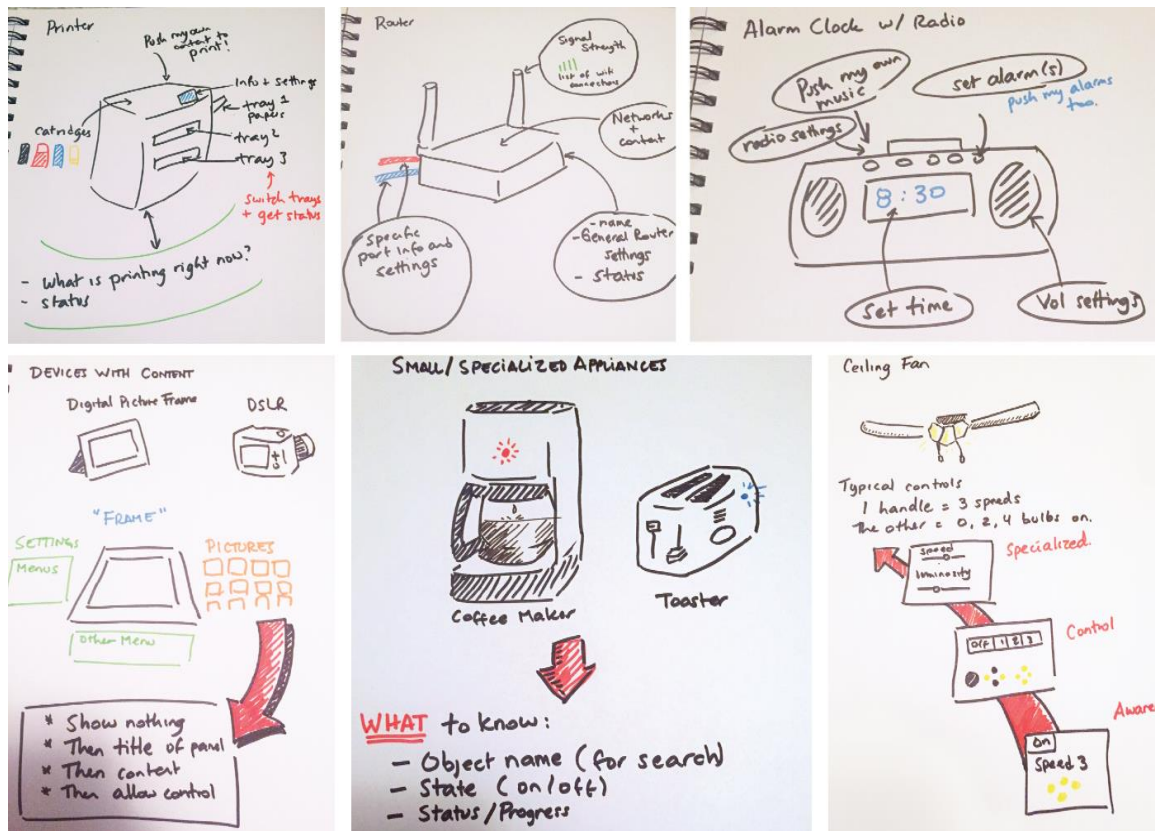 Printer
Push my own
content to
print!
Info + settings
tray 1
papers
tray 2
tray 3
catridges
switch trays
+ get status
- What is printing right now?
- status
Router
Signal
Strength
list of wifi
connections
Networks
+
content
Specific
port info and
settings
- name
- General Router
settings
- Status
Alarm Clock w/ Radio
Push my own
music
set alarm(s)
push my alarms
too.
radio settings
8:30
set time
Vol settings
DEVICES WITH CONTENT
Digital Picture Frame
DSLR
"FRAME"
SETTINGS
Menus
PICTURES
Other Menu
* Show nothing
* Then title of panel
* Then content
* Then allow control
SMALL/SPECIALIZED APPLIANCES
Coffee Maker
Toaster
WHAT to know:
- Object name (for search)
- State (on/off)
- Status/Progress
Ceiling Fan
Typical controls
1 handle = 3 speeds
The other = 0, 2, 4 bulbs on.
Specialized.
speed
luminosity
Control
Off 1 2 3
Aware
On
Speed 3